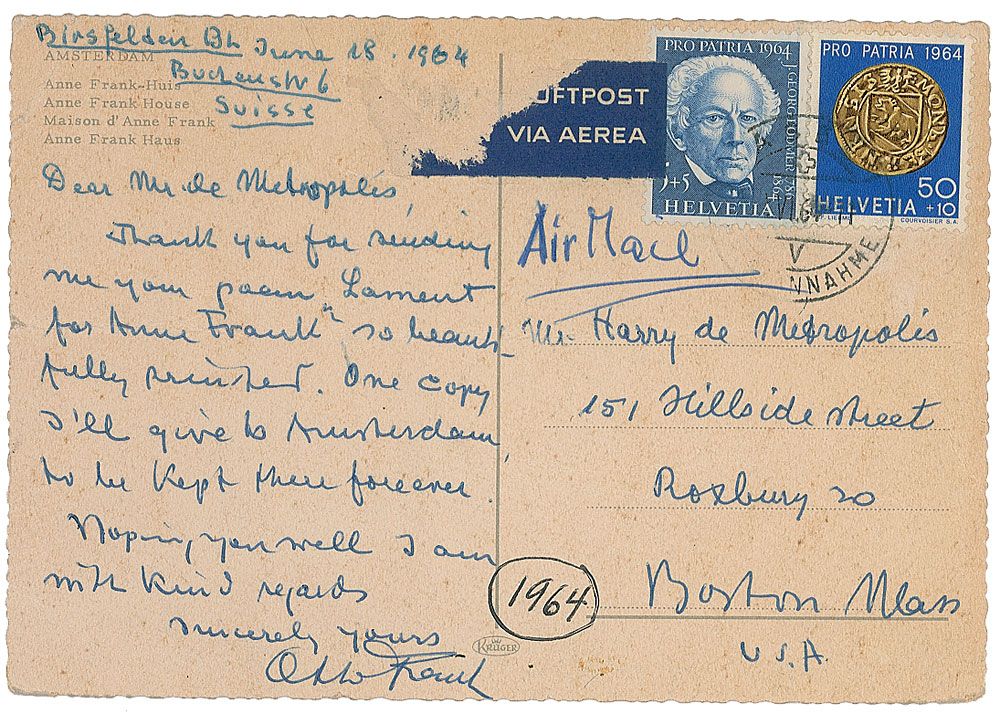 Birsfelden BL June 18. 1964
AMSTERDAM
Buchenstr 6
Anne Frank-Huis
Anne Frank House
Suisse
Maison d'Anne Frank
Anne Frank Haus
Dear Mr. de Metropolis,
Thank you for sending
me your poem "Lament
for Anne Frank" so beauti-
fully printed. One copy
I'll give to Amsterdam
to be kept there forever.
Hoping you well I am
with kind regards
sincerely yours
Otto Frank
LUFTPOST
VIA AEREA
PRO PATRIA 1964
J. GEORG BODMER 1786 1864
+5
HELVETIA
PRO PATRIA 1964
50
HELVETIA +10
COURVOISIER S.A.
V
NNAHME
Air Mail
Mr. Harry de Metropolis
151 Hillside street
Roxbury 20
Boston Mass
U.S.A.
1964
KRÜGER